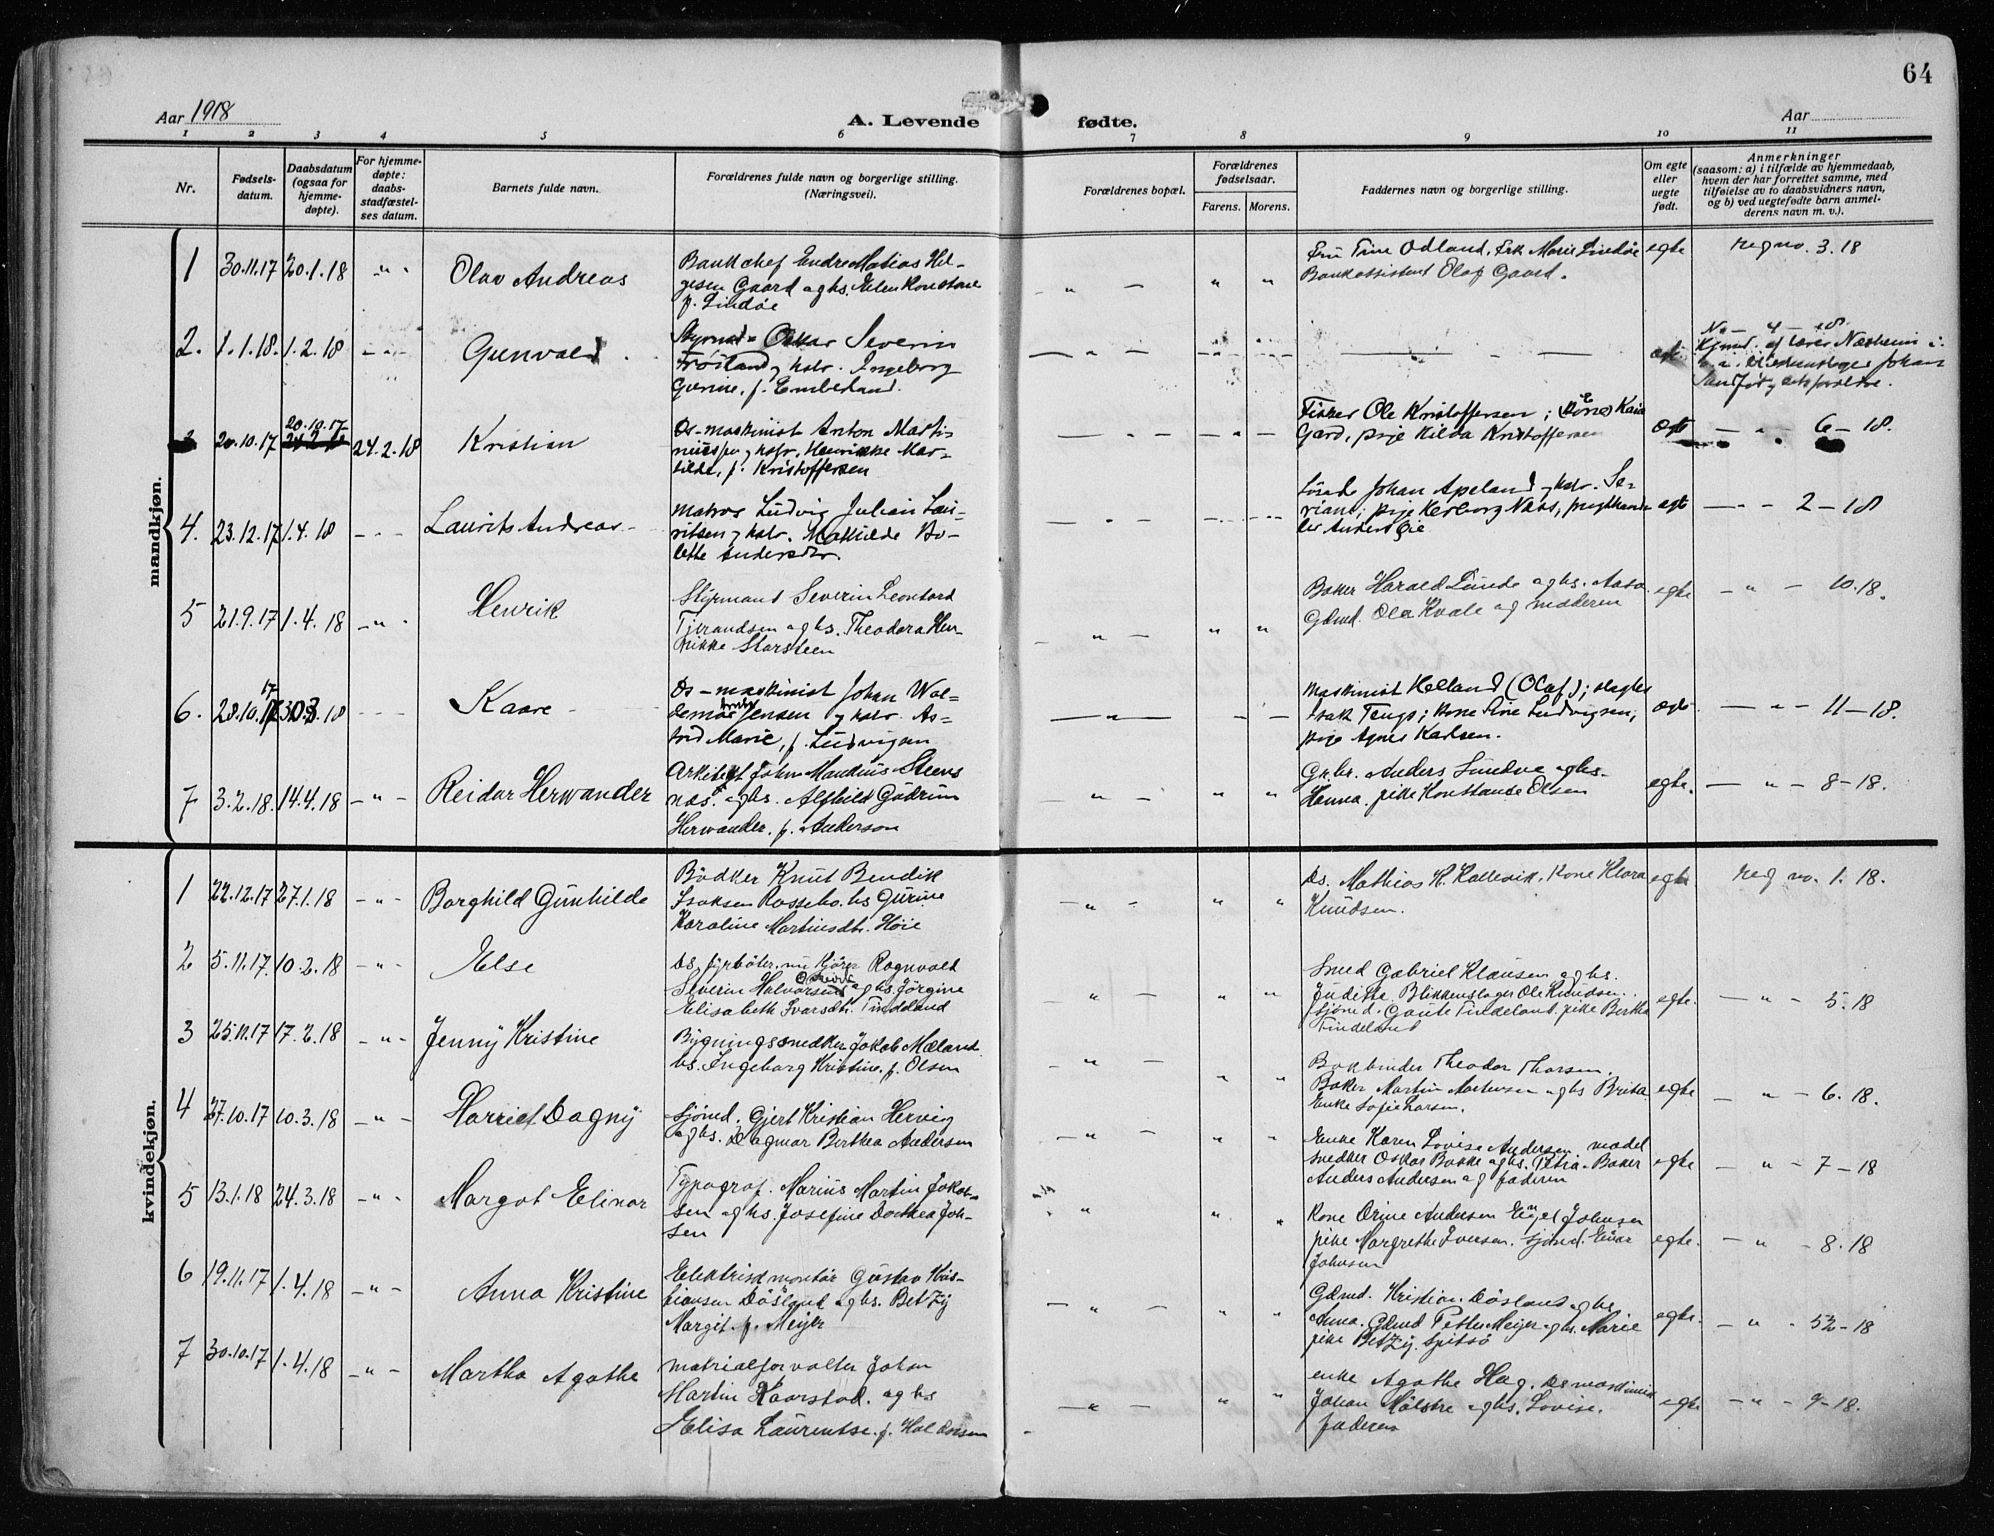 64
Aar 1918
A. Levende fødte.
Aar
1 2 3 4 5 6 7 8 9 10 11
Nr.
Fødsels-
datum.
Daabsdatum
(ogsaa for
hjemme-
døpte).
For hjemme-
døpte:
daabs-
stadfæstel-
ses datum.
Barnets fulde navn.
Forældrenes fulde navn og borgerlige stilling.
(Næringsvei).
Forældrenes bopæl.
Forældrenes
fødselsaar.
Farens. Morens.
Faddernes navn og borgerlige stilling.
Om egte
eller
uegte
født.
Anmerkninger
(saasom: a) i tilfælde av hjemmedaab,
hvem der har forrettet samme, med
tilføielse av to daabsvidners navn,
og b) ved uegtefødte barn anmel-
derens navn m. v.).
mandkjøn.
1 30.11.17 20.1.18 - " - Olav Andreas
Bankchef Endre Matias Hel-
gesen Gaard og hs. Elen Konstanse
f. Lindøe
- " - " "
Fru Trine Odland, Frk Marie Lindøe
Bankassistent Olaf Gaard.
egte reg no. 3.18
2. 1.1.18. 1.2.18 - " - Gunvald
Styrmd. Oskar Severin
Frøsland og hstr. Ingeborg
Gurine, f. Emberland.
- " -
egte
No - 4 - 18.
Kjmd. af lærer Næsheim i
3 20.10.17 20.10.17 24.2.18 Kristian
Ds-maskinist Anton Marti-
niussen og hstr. Henrikke Mat-
hilde, f. Kristoffersen
- " -
Fisker Ole Kristoffersen; Kone Kaia
Gard, pige Hilda Kristoffersen
egte - " - 6-18.
4. 23.12.17 1.4.18 - - - Laurits Andreas
Matros Ludvig Julian Lau-
ritsen og hstr. Makilde Bo-
lette Andersdtr.
- " -
Johan Apeland og hstr. Se-
rianna; pige Herborg Næs,
Anders Øie
egte - " - 2-18
5 21.9.17 1.4.18 - " - Henrik
Styrmand Severin Leonhard
Tjerandsen og hs. Theodora Hen-
rikke Storsteen
- " - " "
Baker Harald Lunde og hs. Aasa
Gdmd. Ola Kvale og moderen
egte - " - 10.18.
6. 28.10.17 30.3.18 - - - Kaare
Ds-maskinist Johan Wal-
demar Jensen og hstr. As-
trid Marie, f. Ludvigsen
- " -
Maskinist Helland (Olaf); slagter
Isak Tengs; kone Sine Ludvigsen,
pige Agnes Karlsen.
egte - " - 11-18.
7 3.2.18. 14.4.18 - " - Reidar Herwander
Arkitekt John Mandius Steens
næs. og hs. Alfhild Gudrun
Herwander. f. Anderson
- " - " "
Gr.br. Anders Sundve og hs.
Henna. pike Konstanse Olsen
egte. - " - 8-18.
kvindekjøn.
1 22.12.17 27.1.18 - " - Borghild Gunhilde
Bødker Knut Bendik
Isaksen Rossebø. hs Gurine
Karoline Martinsdtr. Høie
- " - " "
Ds. Mathias K. Kallevik. Kone Klara
Knudsen.
egte reg no. 1.18.
2 5.11.17. 10.2.18 - " - Else
Ds. fyrbøter. nu kjører Ragnvald
Severin Halvorsen og hs. Jørgine
Elisabeth Ivarsdtr. Tindeland
- " - " "
Smed Gabriel Klausen og hs.
Juditte. Blikkenslager Ole Knudsen.
Sjømd. Gaute Tindeland. pike Bertha
Tindeland
egte. - " - 5.18
3 25.11.17 17.2.18 - " - Jenny Kristine
Bygningssnedker Jakob Mæland.
hs. Ingeborg Kristine. f. Olsen
- " - " "
Bokbinder Theodor Thorsen.
Baker Martin Mortensen og hs Brita
Enke Sofie Larsen.
egte - " - 6.18.
4 27.10.17 10.3.18 - " - Harriet Dagny
Sjømd. Gjert Kristian Hervig
og hs. Dagmar Birthea Andersen
- " - " "
Enke Karen Lovise Andersen. model
snedker Oskar Bakke og hs. Petra. Baker
Anders Andersen og faderen
egte - " - 7-18
5 13.1.18 24.3.18 - " - Margot Elinor
Typograf. Marius Martin Jakob-
sen og hs. Josefine Dorthea Joh-
sen
" " "
Kone Orine Andersen Engel Johnsen
pike Margrethe Iversen. Sjømd. Einar
Johnsen
egte. - " - 8.18
6 19.11.17 1.4.18 - " - Anna Kristine
Elektrisd montør Gustav Kris-
tiansen Døsland og hs. Betzy
Margit. f. Meijer
- " - " "
Gdmd. Kristian. Døsland og hs.
Anna. Gdmd Petter Meijer og hs. Marie
pike Betzy. Spitsø
egte. - " - 52-18
7 30.10.17 1.4.18 - " - Martha Agathe
Matrialforvalter Johan
Martin Kaarstad. og hs
Elisa Laurentse. f. Haldorsen
- " - " "
enke Agathe Hag. Ds maskinist
Johan Mølstre og hs. Lovise.
faderen
egte - " - 9-18.